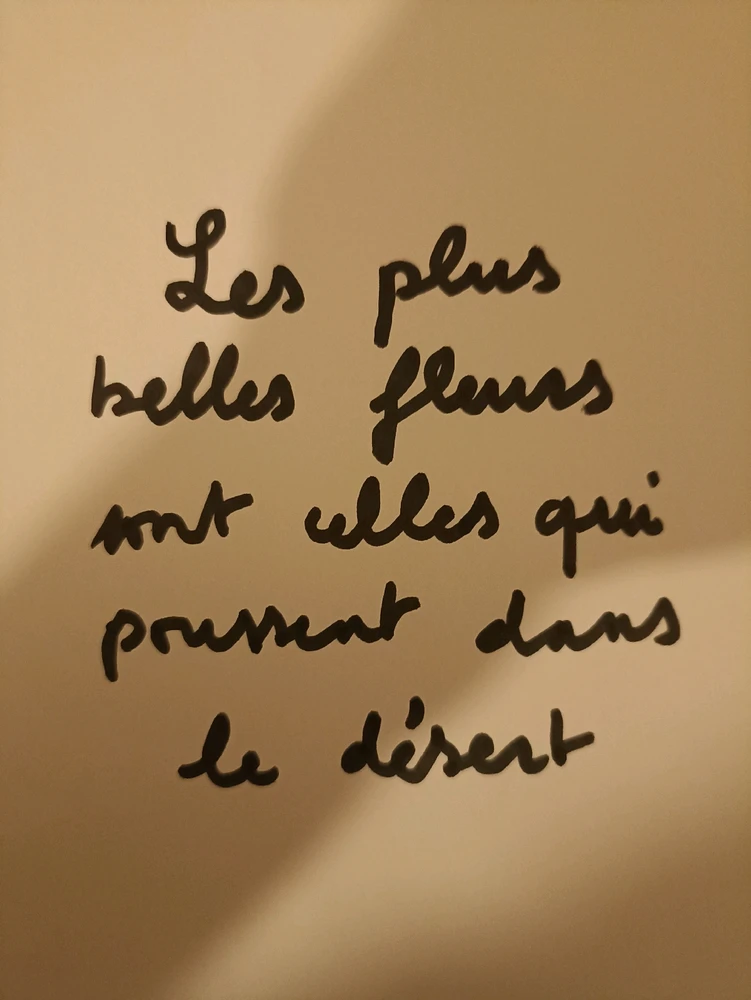 Les plus
belles fleurs
sont celles qui
poussent dans
le désert